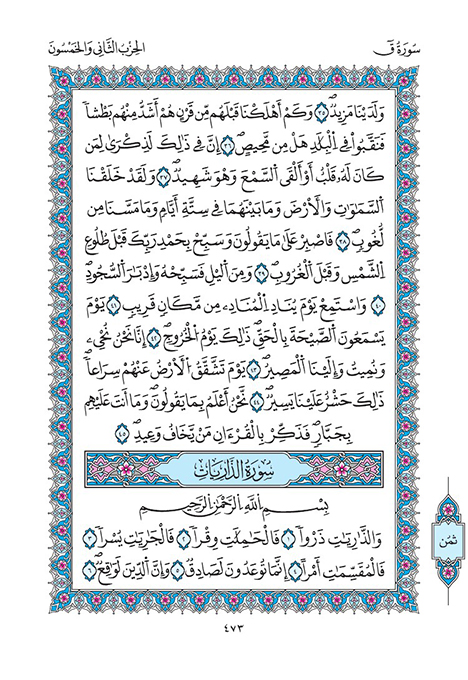 سورة ق
الحزب الثاني والخمسون
وَلَدَيْنَا مَزِيدٌ ٣٥ وَكَمْ أَهْلَكْنَا قَبْلَهُم مِّن قَرْنٍ هُمْ أَشَدُّ مِنْهُم بَطْشاً
فَنَقَّبُوا فِي الْبِلَٰدِ هَلْ مِن مَّحِيصٍ ٣٦ إِنَّ فِي ذَٰلِكَ لَذِكْرَىٰ لِمَن
كَانَ لَهُۥ قَلْبٌ أَوْ أَلْقَى السَّمْعَ وَهُوَ شَهِيدٌ ٣٧ وَلَقَدْ خَلَقْنَا
السَّمَٰوَٰتِ وَالْأَرْضَ وَمَا بَيْنَهُمَا فِي سِتَّةِ أَيَّامٍ وَمَا مَسَّنَا مِن
لُّغُوبٍ ٣٨ فَاصْبِرْ عَلَىٰ مَا يَقُولُونَ وَسَبِّحْ بِحَمْدِ رَبِّكَ قَبْلَ طُلُوعِ
الشَّمْسِ وَقَبْلَ الْغُرُوبِ ٣٩ وَمِنَ الَّيْلِ فَسَبِّحْهُ وَإِدْبَٰرَ السُّجُودِ
٤٠ وَاسْتَمِعْ يَوْمَ يُنَادِ الْمُنَادِۦ مِن مَّكَانٍ قَرِيبٍ ٤١ يَوْمَ
يَسْمَعُونَ الصَّيْحَةَ بِالْحَقِّ ذَٰلِكَ يَوْمُ الْخُرُوجِ ٤٢ إِنَّا نَحْنُ نُحْيِۦ
وَنُمِيتُ وَإِلَيْنَا الْمَصِيرُ ٤٣ يَوْمَ تَشَّقَّقُ الْأَرْضُ عَنْهُمْ سِرَاعاً
ذَٰلِكَ حَشْرٌ عَلَيْنَا يَسِيرٌ ٤٤ نَّحْنُ أَعْلَمُ بِمَا يَقُولُونَ وَمَا أَنتَ عَلَيْهِم
بِجَبَّارٍ فَذَكِّرْ بِالْقُرْءَانِ مَنْ يَّخَافُ وَعِيدِ ٤٥
سورة الذاريات
بِسْمِ اللهِ الرَّحْمَٰنِ الرَّحِيمِ
وَالذَّارِيَٰتِ ذَرْواً ١ فَالْحَٰمِلَٰتِ وِقْراً ٢ فَالْجَٰرِيَٰتِ يُسْراً ٣
فَالْمُقَسِّمَٰتِ أَمْراً ٤ إِنَّمَا تُوعَدُونَ لَصَادِقٌ ٥ وَإِنَّ الدِّينَ لَوَٰقِعٌ ٦
ثمن
٤٧٣